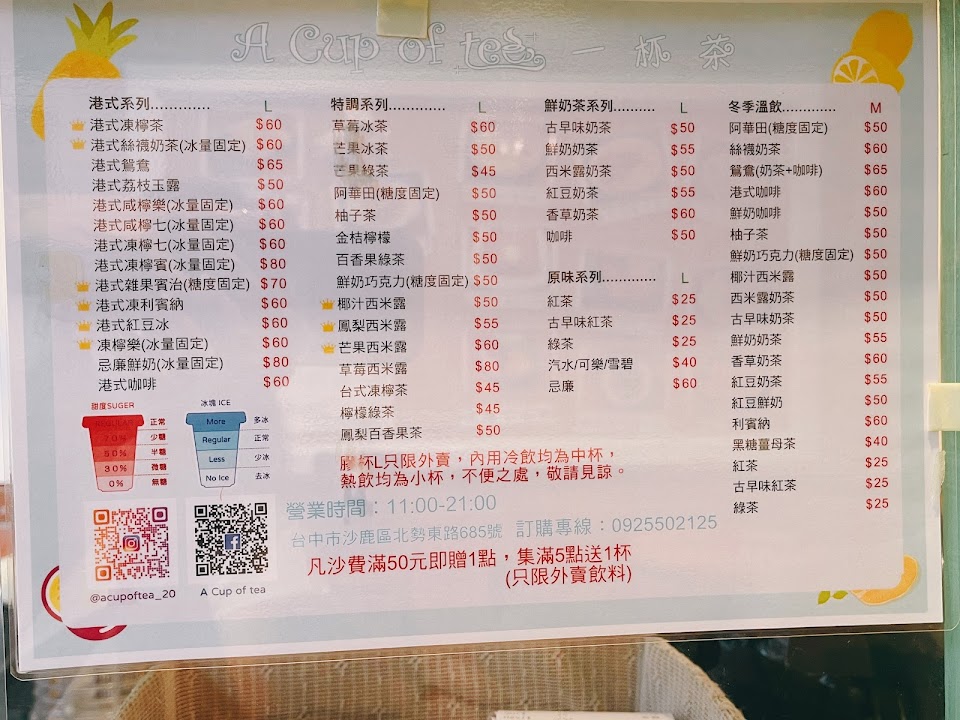 A Cup of tea 一杯茶
港式系列............. L
港式凍檸茶 $60
港式絲襪奶茶(冰量固定) $60
港式鴛鴦 $65
港式荔枝玉露 $50
港式咸檸樂(冰量固定) $60
港式咸檸七(冰量固定) $60
港式凍檸七(冰量固定) $60
港式凍檸賓(冰量固定) $80
港式雜果賓治(糖度固定) $70
港式凍利賓納 $60
港式紅豆冰 $60
凍檸樂(冰量固定) $60
忌廉鮮奶(冰量固定) $80
港式咖啡 $60
特調系列............. L
草莓冰茶 $60
芒果冰茶 $50
芒果綠茶 $45
阿華田(糖度固定) $50
柚子茶 $50
金桔檸檬 $50
百香果綠茶 $50
鮮奶巧克力(糖度固定) $50
椰汁西米露 $50
鳳梨西米露 $55
芒果西米露 $60
草莓西米露 $80
台式凍檸茶 $45
檸檬綠茶 $45
鳳梨百香果茶 $50
鮮奶茶系列.......... L
古早味奶茶 $50
鮮奶奶茶 $55
西米露奶茶 $50
紅豆奶茶 $55
香草奶茶 $60
咖啡 $50
原味系列............. L
紅茶 $25
古早味紅茶 $25
綠茶 $25
汽水/可樂/雪碧 $40
忌廉 $60
冬季溫飲............. M
阿華田(糖度固定) $50
絲襪奶茶 $60
鴛鴦(奶茶+咖啡) $65
港式咖啡 $60
鮮奶咖啡 $50
柚子茶 $50
鮮奶巧克力(糖度固定) $50
椰汁西米露 $50
西米露奶茶 $50
古早味奶茶 $50
鮮奶奶茶 $55
香草奶茶 $60
紅豆奶茶 $55
紅豆鮮奶 $50
利賓納 $60
黑糖薑母茶 $40
紅茶 $25
古早味紅茶 $25
綠茶 $25
甜度SUGER
REGULAR 正常
70% 少糖
50% 半糖
30% 微糖
0% 無糖
冰塊 ICE
More 多冰
Regular 正常
Less 少冰
No Ice 去冰
膠杯L只限外賣，內用冷飲均為中杯，
熱飲均為小杯，不便之處，敬請見諒。
營業時間：11:00-21:00
台中市沙鹿區北勢東路685號 訂購專線：0925502125
凡沙費滿50元即贈1點，集滿5點送1杯
(只限外賣飲料)
@acupoftea_20
A Cup of tea